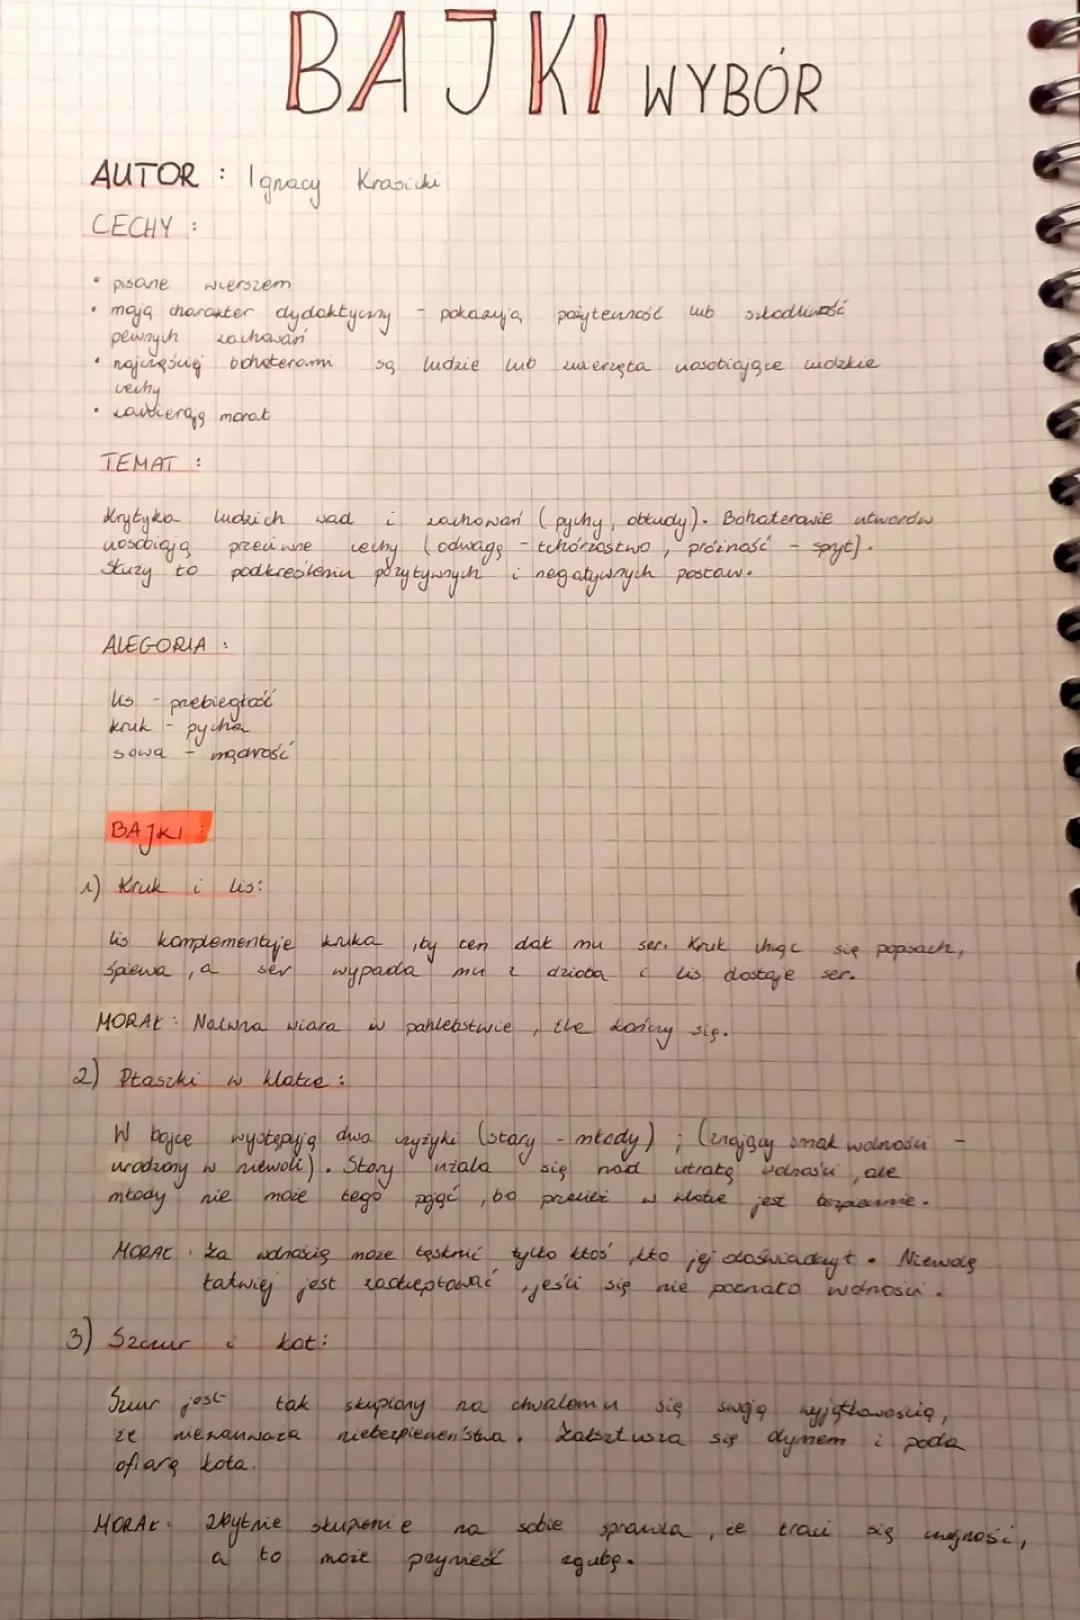 BAJKI WYBÓR
AUTOR : Ignacy Krasicki
CECHY :
• pisane wierszem
• mają charakter dydaktyczny - pokazują pożyteczność lub szkodliwość
pewnych zachowań
• najczęściej bohaterami są ludzie lub zwierzęta uosobiające ludzkie
cechy
• zawierają morał
TEMAT :
Krytyka ludzkich wad i zachowań (pychy, obłudy). Bohaterowie utworów
uosobiają przeciwne cechy (odwagę - tchórzostwo, próżność - spryt).
Służy to podkreśleniu pozytywnych i negatywnych postaw.
ALEGORIA :
lis - przebiegłość
kruk - pycha
sowa - mądrość
BAJKI :
1) Kruk i lis:
lis komplementuje kruka, by ten dał mu ser. Kruk chcąc się popisać,
śpiewa, a ser wypada mu z dzioba i lis dostaje ser.
MORAŁ: Naiwna wiara w pochlebstwie, źle kończy się.
2) Ptaszki w klatce:
W bajce występują dwa czyżyki (stary - młody); (znający smak wolności -
urodzony w niewoli). Stary użala się nad utratą wolności, ale
młody nie może tego pojąć, bo przecież w klatce jest bezpiecznie.
MORAŁ: Za wolnością może tęsknić tylko ktoś, kto jej doświadczył. Niewolę
łatwiej jest zaakceptować, jeśli się nie poznało wolności.
3) Szczur i kot:
Szczur jest tak skupiony na chwaleniu się swoją wyjątkowością,
że niezauważa niebezpieczeństwa. Zakrztusza się dymem i pada
ofiarą kota.
MORAŁ: Zbytnie skupienie na sobie sprawia, że traci się czujność,
a to może przynieść zgubę.